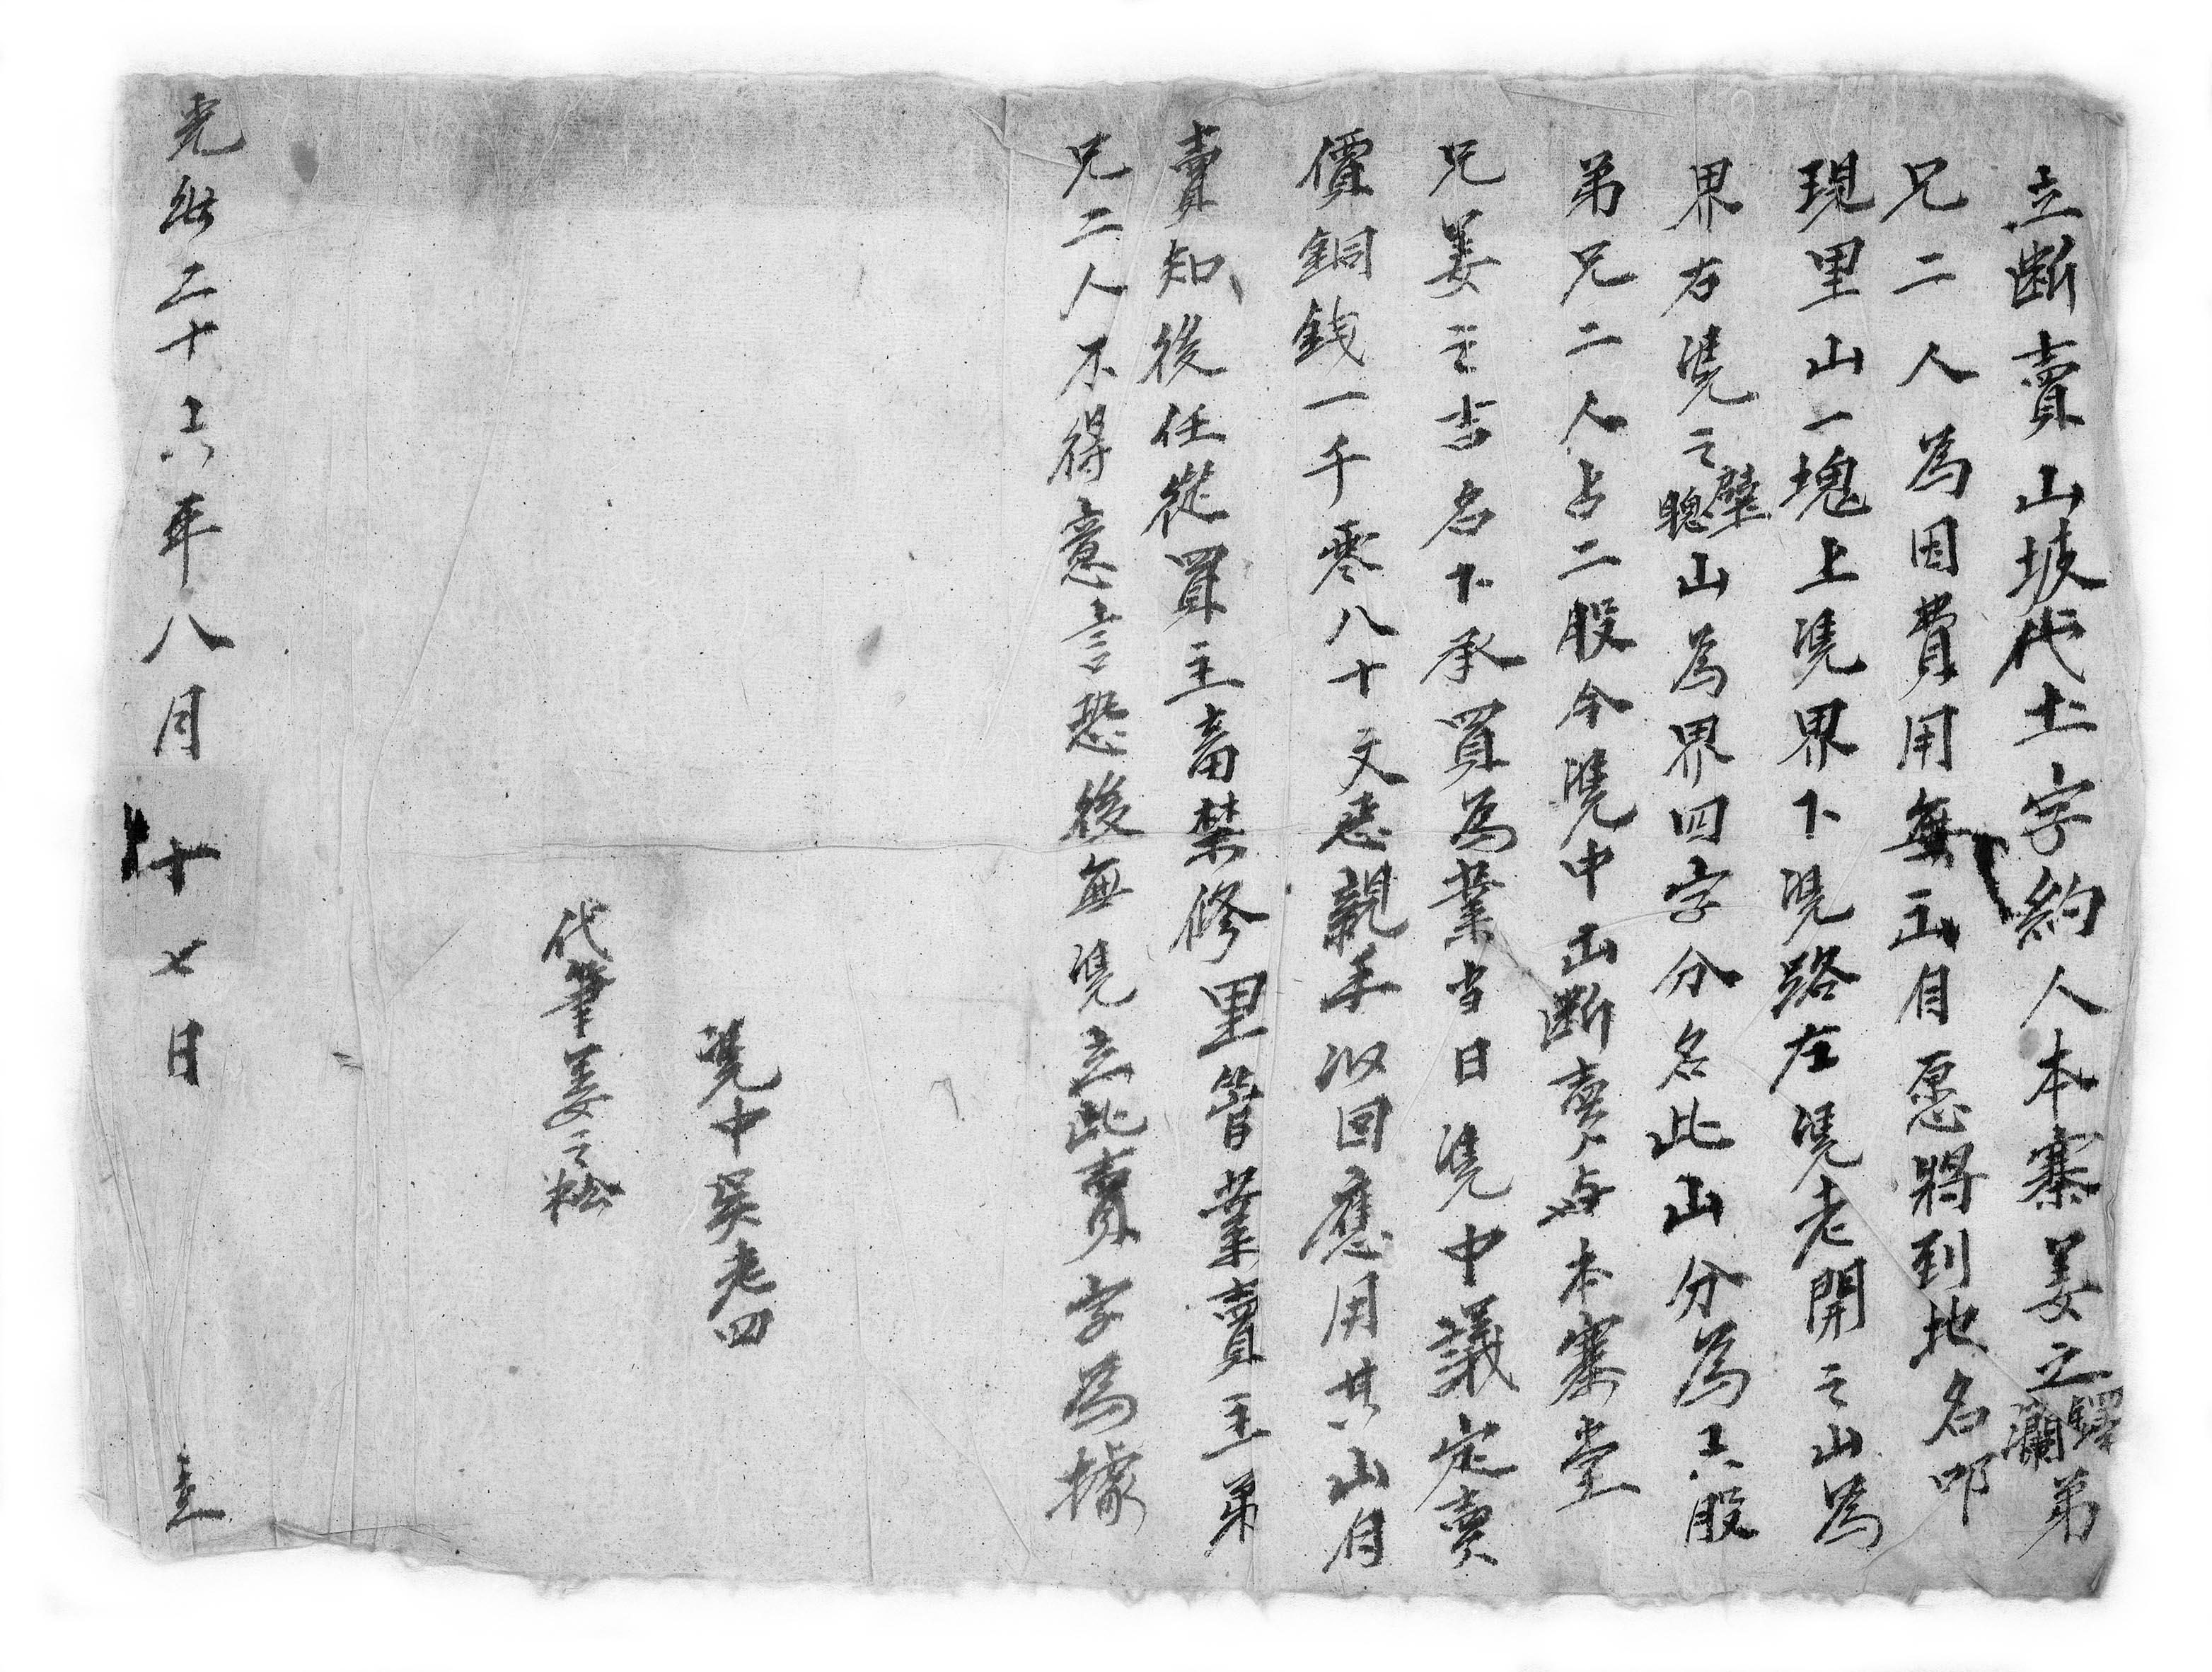 立斷賣山坡代土字約人本寨姜之鐸瀾弟
兄二人為因費用無出自愿將到地名叩
現里山一塊上凴界下凴路左凴老開之山為
界右凴之璧聰山為界四字分名此山分為六股
弟兄二人占二股今凴中出斷賣与本寨堂
兄姜之吉名下承買為業当日凴中議定賣
價銅錢一千零八十文悉親手収回應用其山自
賣知後任從買主畜禁修里管業賣主弟
兄二人不得意言恐後無凴立此賣字為據
凴中吳老四
代筆姜之松
光緒二十六年八月十七日 立